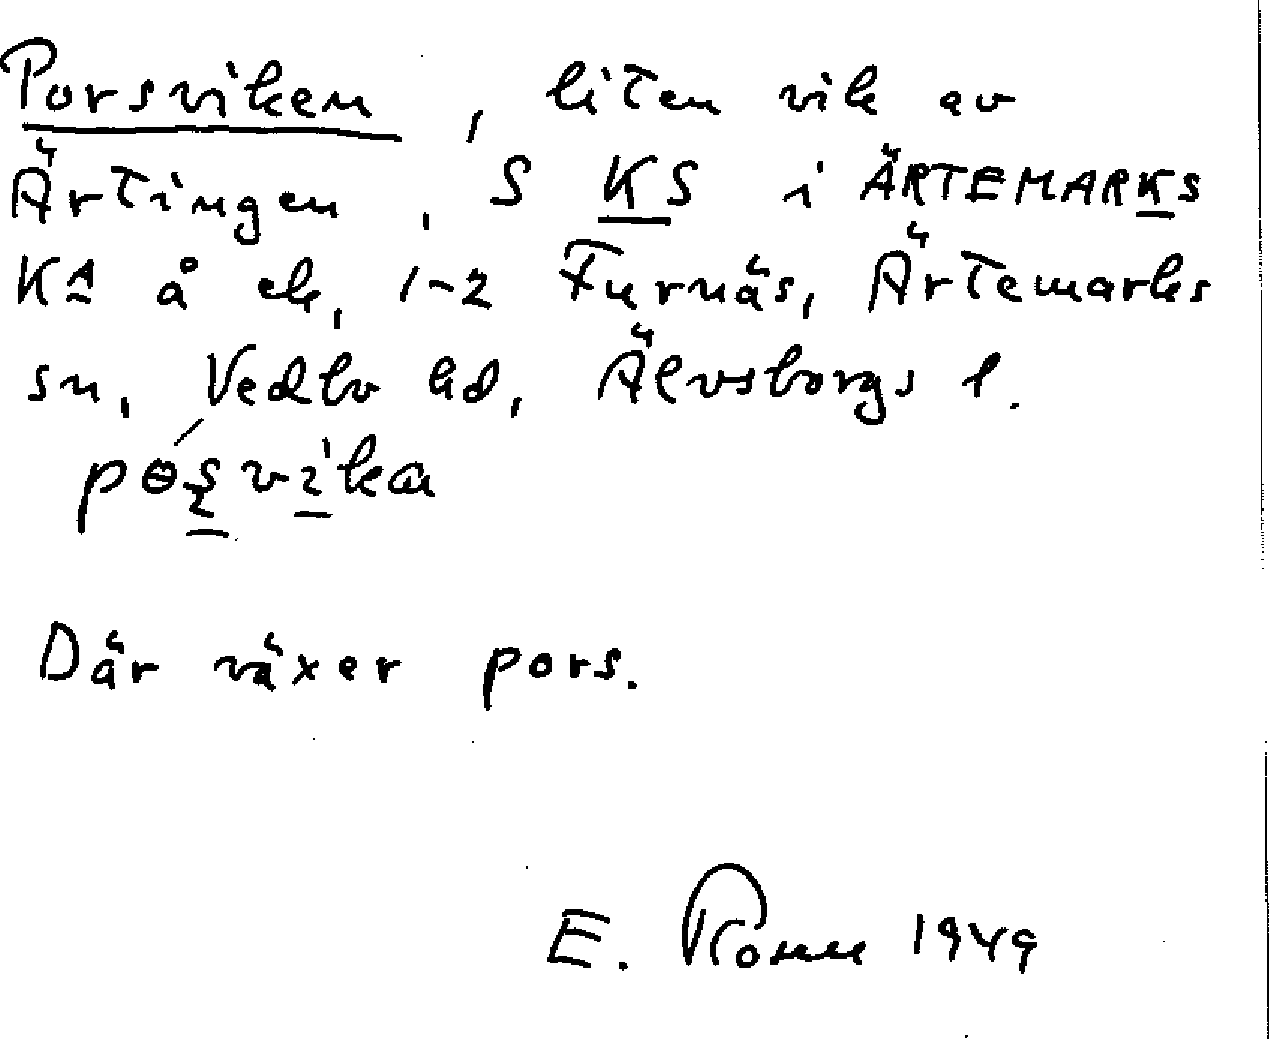 Porsviken, liten vik av
Ärtingen, S KS i ÄRTEMARKS
KA å ek, 1-2 Furnäs, Ärtemarks
sn, Vedbo hd, Älvsborgs l.
Där växer pors.
E. 1949